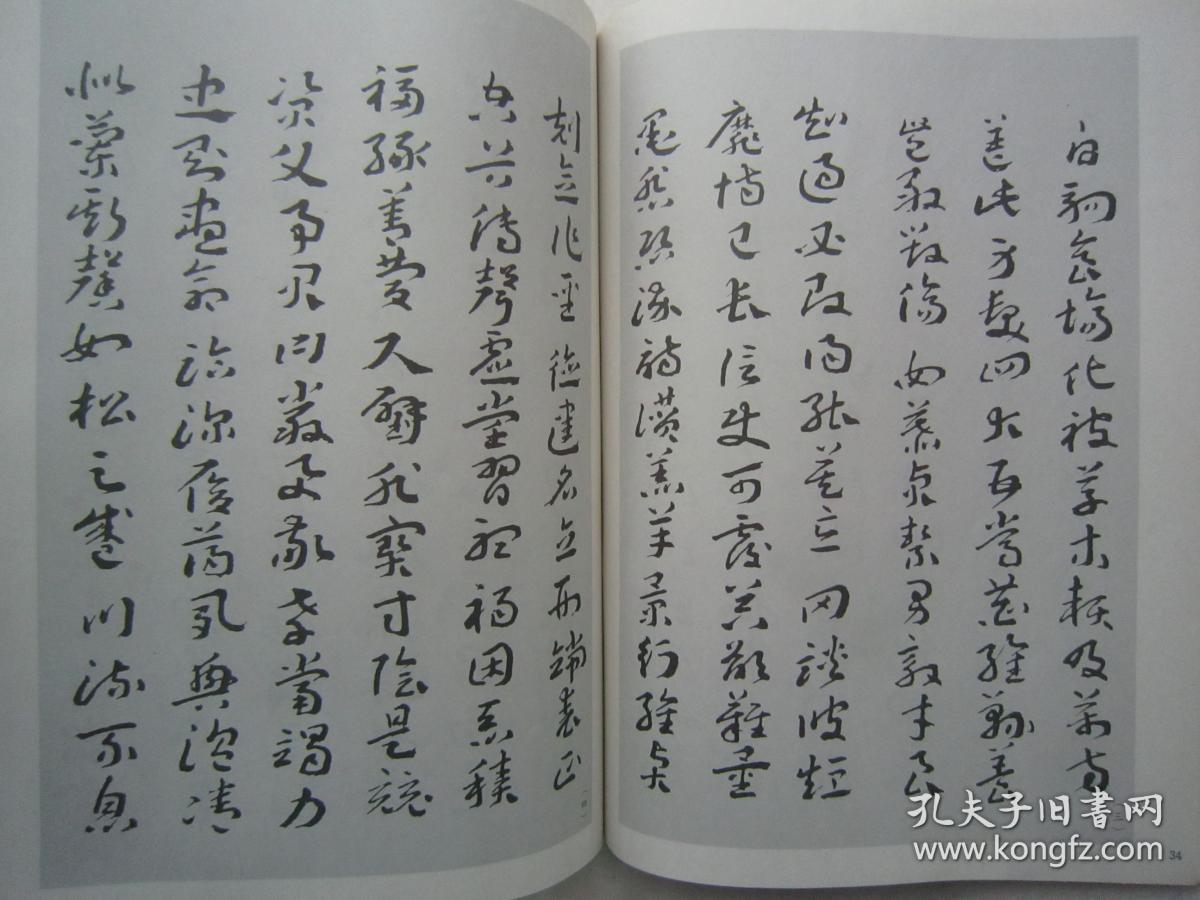 白駒食場化被草木賴及萬方
蓋此身髮四大五常恭惟鞠養
豈敢毀傷女慕貞絜男效才良
知過必改得能莫忘罔談彼短
靡恃己長信使可覆器欲難量
墨悲絲染詩讚羔羊景行維賢
(三)
34
剋念作聖德建名立形端表正
空谷傳聲虛堂習聽禍因惡積
福緣善慶尺璧非寶寸陰是競
資父事君曰嚴與敬孝當竭力
忠則盡命臨深履薄夙興溫凊
似蘭斯馨如松之盛川流不息
(四)
孔夫子旧书网
www.kongfz.com